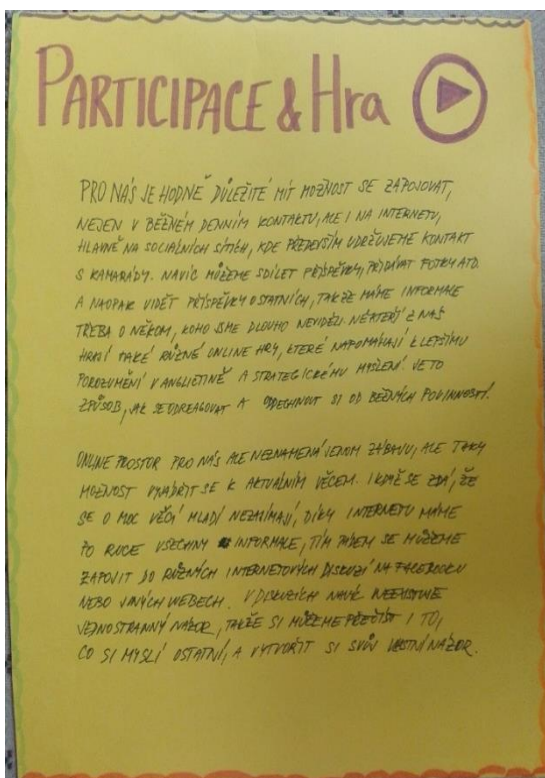 PARTICIPACE & Hra
PRO NÁS JE HODNĚ DŮLEŽITÉ MÍT MOŽNOST SE ZAPOJOVAT,
NEJEN V BĚŽNÉM DENNÍM KONTAKTU, ALE I NA INTERNETU,
HLAVNĚ NA SOCIÁLNÍCH SÍTÍCH, KDE PŘEDEVŠÍM UDRŽUJEME KONTAKT
S KAMARÁDY. NAVÍC MŮŽEME SDÍLET PŘÍSPĚVKY, PŘIDÁVAT FOTKY ATD.
A NAOPAK VIDĚT PŘÍSPĚVKY OSTATNÍCH, TAKŽE MÁME INFORMACE
TŘEBA O NĚKOM, KOHO JSME DLOUHO NEVIDĚLI. NĚKTEŘÍ Z NÁS
HRAJÍ TAKÉ RŮZNÉ ONLINE HRY, KTERÉ NAPOMÁHAJÍ K LEPŠÍMU
POROZUMĚNÍ V ANGLIČTINĚ A STRATEGICKÉMU MYŠLENÍ. JE TO
ZPŮSOB, JAK SE ODREAGOVAT A ODDECHNOUT SI OD BĚŽNÝCH POVINNOSTÍ.
ONLINE PROSTOR PRO NÁS ALE NEZNAMENÁ JENOM ZÁBAVU, ALE TAKY
MOŽNOST VYJÁDŘIT SE K AKTUÁLNÍM VĚCEM. I KDYŽ SE ZDÁ, ŽE
SE O MOC VĚCÍ MLADÍ NEZAJÍMAJÍ, DÍKY INTERNETU MÁME
PO RUCE VŠECHNY INFORMACE, TÍM PÁDEM SE MŮŽEME
ZAPOJIT DO RŮZNÝCH INTERNETOVÝCH DISKUZÍ NA FACEBOOKU
NEBO JINÝCH WEBECH. V DISKUZÍCH NAVÍC
JEDNOSTRANNÝ NÁZOR, TAKŽE SI MŮŽEME PŘEČÍST I TO,
CO SI MYSLÍ OSTATNÍ, A VYTVOŘIT SI SVŮJ VLASTNÍ NÁZOR.